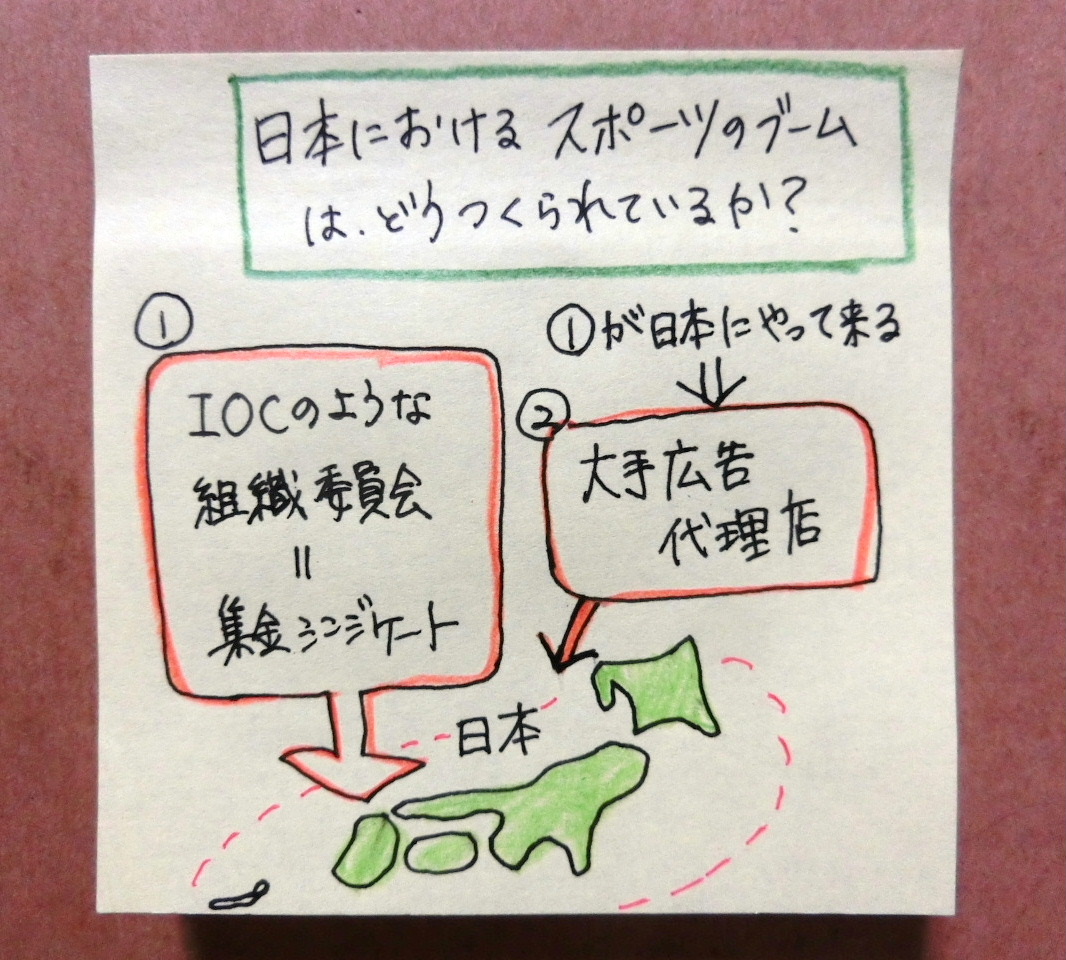 日本におけるスポーツのブーム
は、どうつくられているか?
①
IOCのような
組織委員会
=
集金シンジケート
①が日本にやって来る
②
大手広告
代理店
日本